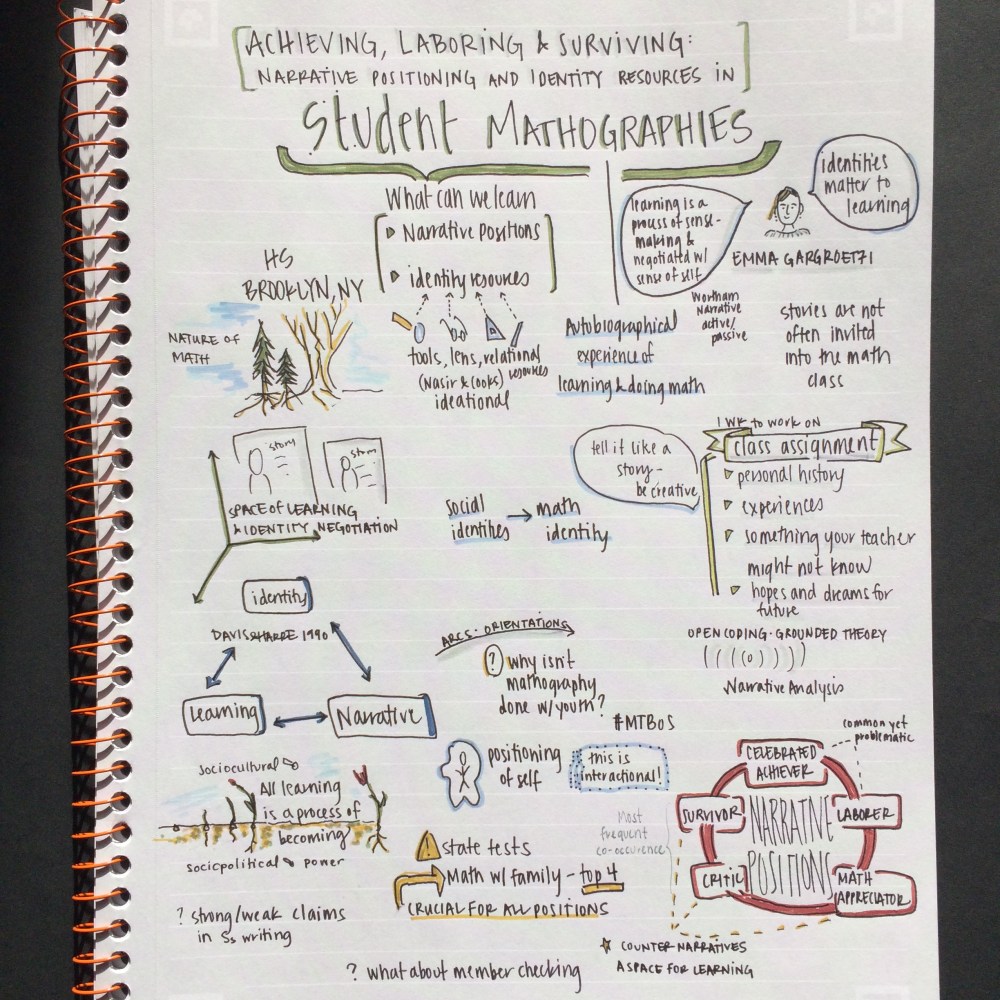 ACHIEVING, LABORING & SURVIVING:
NARRATIVE POSITIONING AND IDENTITY RESOURCES IN
Student MATHOGRAPHIES
What can we learn
Narrative positions
identity resources
tools, lens, relational
resources
(Nasir & Cooks)
ideational
learning is a
process of sense-
making &
negotiated w/
sense of self
identities
matter to
learning
EMMA GARGROETZI
HS
BROOKLYN, NY
NATURE OF
MATH
Autobiographical
experience of
learning & doing math
Wortham
Narrative
active/
passive
stories are not
often invited
into the math
class
story
story
SPACE OF LEARNING
& IDENTITY NEGOTIATION
social
identities → math
identity
tell it like a
story -
be creative
1 WK to work on
class assignment
personal history
experiences
something your teacher
might not know
hopes and dreams for
future
identity
DAVIS & HARRE 1990
Learning
Narrative
ARCS · ORIENTATIONS
? why isn't
mathography
done w/ youth?
#MTBOS
OPEN CODING · GROUNDED THEORY
((((o))))
Narrative Analysis
positioning
of self
this is
interactional!
common yet
problematic
CELEBRATED
ACHIEVER
SURVIVOR
LABORER
NARRATIVE
POSITIONS
CRITIC
MATH
APPRECIATOR
Most
frequent
co-occurence
sociocultural
All learning
is a process of
becoming
sociopolitical power
! state tests
Math w/ family - top 4
CRUCIAL FOR ALL POSITIONS
? strong/weak claims
in Ss writing
COUNTER NARRATIVES
A SPACE FOR LEARNING
? what about member checking